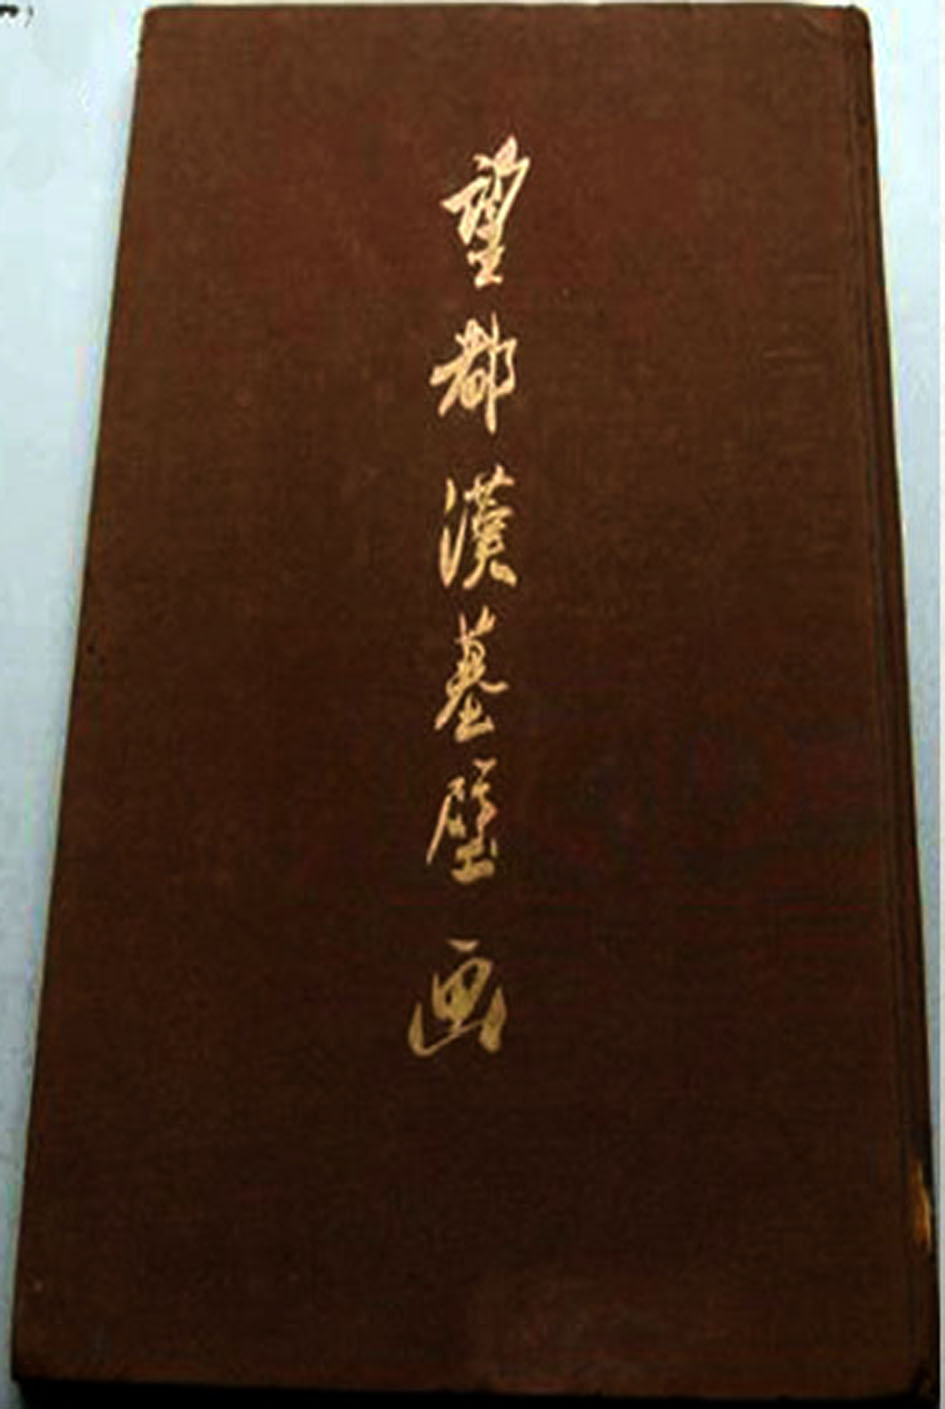 望都漢墓壁画